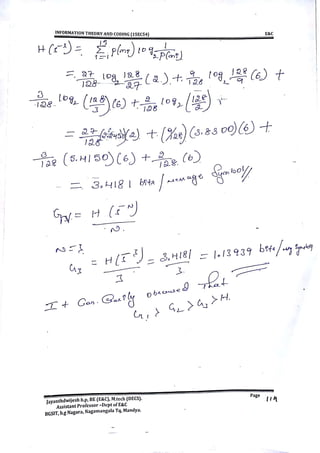 INFORMATION THEORY AND CODING (15EC54) E&C
H(s̄³) = Σ p(mi) log₂ 1/P(mi)
= 27/128 log₂ 128/27 (2) + 9/128 log₂ 128/9 (6) +
3/128 log₂ (128/3) (6) + 2/128 log₂ (128/2)
= 27/128 (2) + (9/128) (3.8300)(6) +
3/128 (5.4150)(6) + 2/128 (6)
= 3.4181 bits/message symbol//
G_N = H(s̄ᴺ)/N
N=3
G₃ = H(s̄³)/3 = 3.4181/3 = 1.13939 bits/msg symbol
It Can Easily observed that
G₁ > G₂ > G₃ > H.
Jayanthdwijesh h.p, BE (E&C), M.tech (DECS).
Assistant Professor – Dept of E&C
BGSIT, b.g Nagara, Nagamangala Tq, Mandya.
Page 119